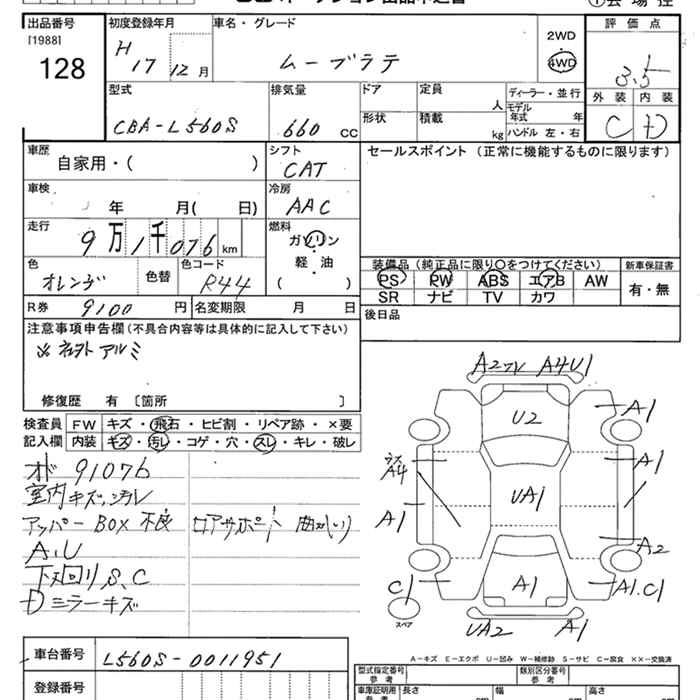 出品番号
[1988]
128
初度登録年月
H
17 12月
車名・グレード
ムーブラテ
2WD
・
4WD
評価点
3.5
外装 内装
C D
型式
CBA-L560S
排気量
660 CC
ドア
定員
人
ディーラー・並行
モデル
年式 年
形状
積載
kg
ハンドル 左・右
車歴
自家用・( )
シフト
CAT
セールスポイント (正常に機能するものに限ります)
車検
年 月( 日)
冷房
AAC
走行
9万1千076km
燃料
ガソリン
軽・油
( )
色
オレンヂ
色替
色コード
R44
装備品(純正品に限り○をつけてください)
新車保証書
PS PW ABS エアB AW
有・無
SR ナビ TV カワ
R券 9100円
名変期限 月 日
後日品
注意事項申告欄(不具合内容等は具体的に記入して下さい)
※ 社外アルミ
修復歴 有〔箇所 〕
検査員
記入欄
FW キズ・飛石・ヒビ割・リペア跡・×要
内装 キズ・汚レ・コゲ・穴・スレ・キレ・破レ
オド 91076
室内キズ、汚レ
アッパーBOX不良 ロアサポート曲がり
A、U
下廻りS、C
Dミラーキズ
A2 A4U1
U2
A1
A4
A1
UA1
A1
A2
C1
スペア
A1
A1.C1
UA2
A1
A−キズ E−エクボ U−凹み W−補修跡 S−サビ C−腐食 ××−交換済
車台番号
L560S-0011951
登録番号
型式指定番号
参考
類別区分番号
参考
車庫証明用
参考
長さ
幅
高さ